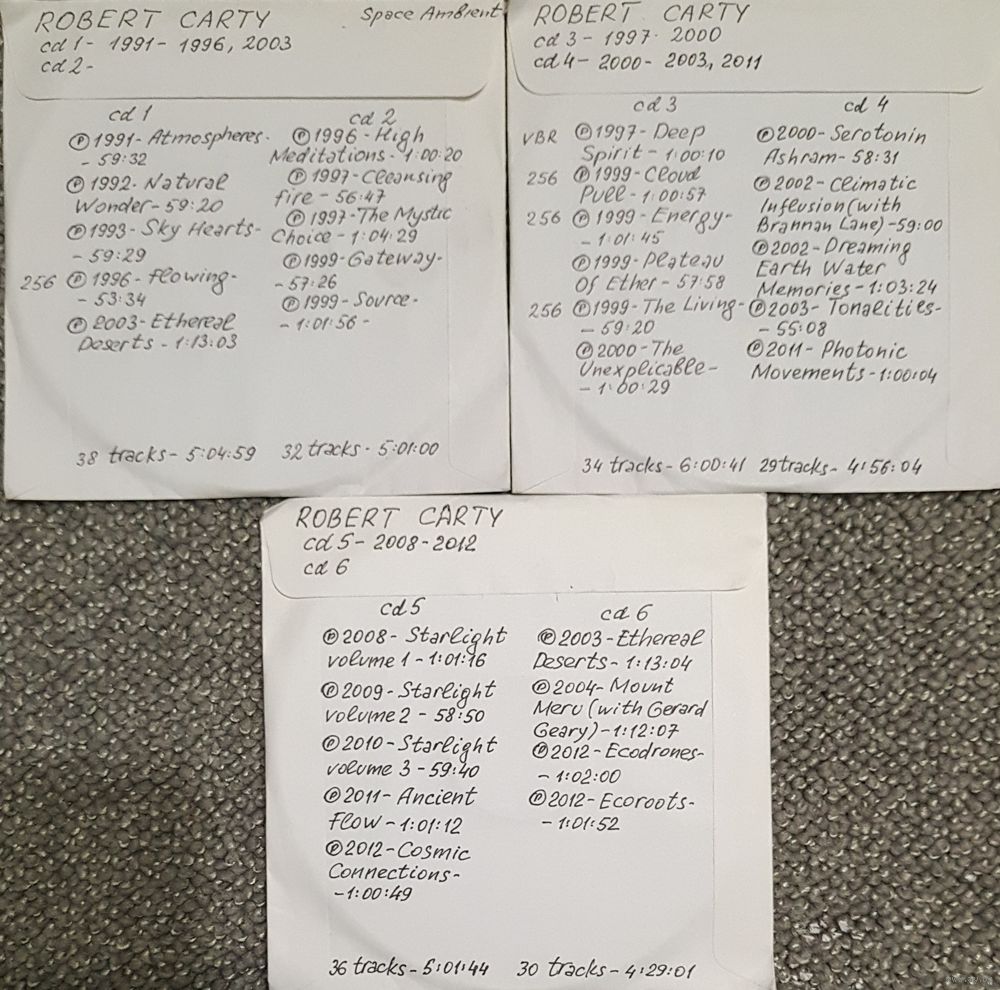 ROBERT CARTY Space Ambient
cd 1- 1991- 1996, 2003
cd 2-
cd 1
Ⓟ1991- Atmospheres-
- 59:32
Ⓟ1992- Natural
Wonder- 59:20
Ⓟ1993- Sky Hearts-
- 59:29
256 Ⓟ1996- Flowing-
- 53:34
Ⓟ2003- Ethereal
Deserts - 1:13:03
38 tracks- 5:04:59
cd 2
Ⓟ1996- High
Meditations- 1:00:20
Ⓟ1997- Cleansing
fire - 56:47
Ⓟ1997- The Mystic
Choice- 1:04:29
Ⓟ1999- Gateway-
- 57:26
Ⓟ1999- Source-
- 1:01:56 -
32 tracks- 5:01:00
ROBERT CARTY
cd 3- 1997- 2000
cd 4- 2000- 2003, 2011
cd 3
VBR Ⓟ1997- Deep
Spirit- 1:00:10
256 Ⓟ1999- Cloud
Pull- 1:00:57
256 Ⓟ1999- Energy-
- 1:01:45
Ⓟ1999- Plateau
Of Ether- 57:58
256 Ⓟ1999- The Living-
- 59:20
Ⓟ2000- The
Unexplicable-
- 1:00:29
34 tracks- 6:00:41
cd 4
Ⓟ2000- Serotonin
Ashram- 58:31
Ⓟ2002- Climatic
Influsion (with
Brannan Lane) -59:00
Ⓟ2002- Dreaming
Earth Water
Memories- 1:03:24
Ⓟ2003- Tonalities-
- 55:08
Ⓟ2011- Photonic
Movements- 1:00:04
29 tracks- 4:56:04
ROBERT CARTY
cd 5- 2008-2012
cd 6
cd 5
Ⓟ2008- Starlight
volume 1 - 1:01:16
Ⓟ2009- Starlight
volume 2 - 58:50
Ⓟ2010- Starlight
volume 3 - 59:40
Ⓟ2011- Ancient
Flow - 1:01:12
Ⓟ2012- Cosmic
Connections-
-1:00:49
36 tracks- 5:01:44
cd 6
Ⓟ2003- Ethereal
Deserts- 1:13:04
Ⓟ2004- Mount
Meru (with Gerard
Geary) -1:12:07
Ⓟ2012- Ecodrones-
- 1:02:00
Ⓟ2012- Ecoroots-
- 1:01:52
30 tracks- 4:29:01